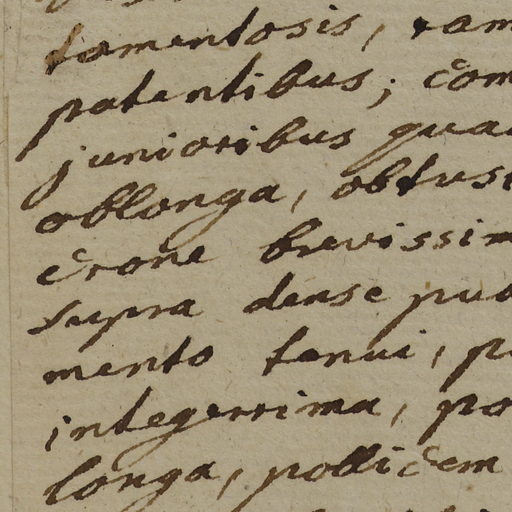 tomentosis, ram
patentibus; com
junioribus qua
oblonga, obtus
crone brevissim
supra dense pu
mento tenui, p
integerrima, po
longa, pollicem